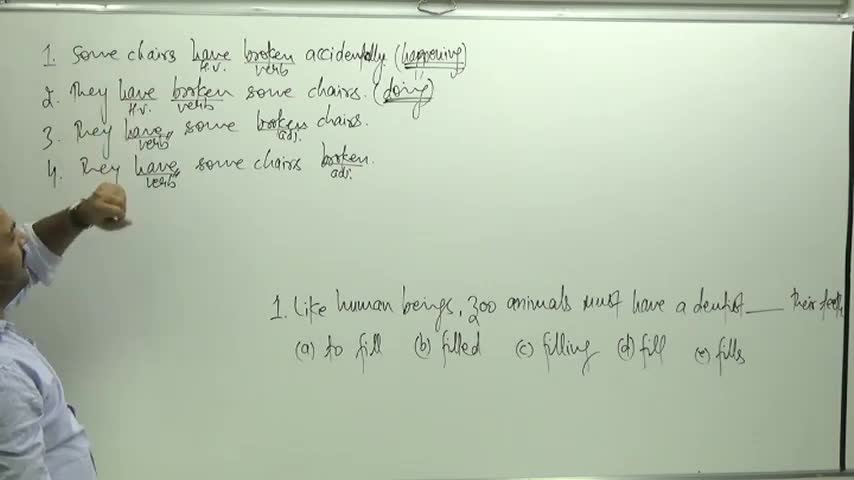 1. Some chairs have broken accidentally. (happening)
H.V. verb
2. They have broken some chairs. (doing)
H.V. verb
3. They have some broken chairs.
verb adj.
4. They have some chairs broken.
verb adj.
1. Like human beings, zoo animals must have a dentist ___ their teeth
(a) to fill (b) filled (c) filling (d) fill (e) fills